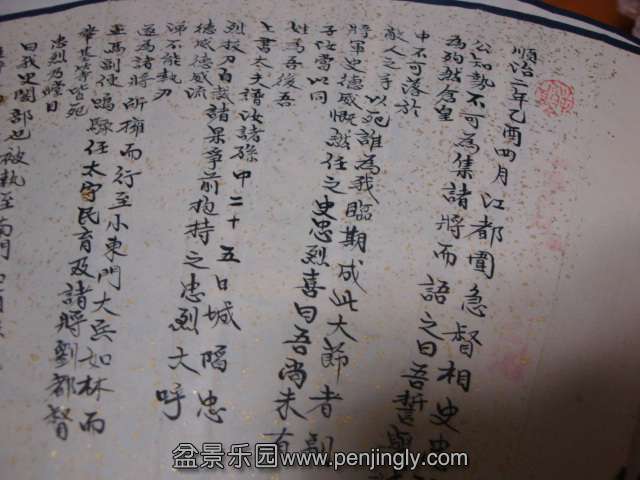 順治二年乙酉四月江都圍急督相史忠
公知勢不可為集諸將而語之曰吾誓與
為殉然倉皇
中不可落於
敵人之手
以死誰為我臨期成此大節者副
將軍史德威慨然任之史忠烈喜曰吾尚未有
子汝當以同
姓為吾後吾
上書太夫譜汝諸孫中二十五日城陷忠
烈拔刀自裁諸果爭前抱持之忠烈大呼
德威德威流
涕不能執刃
遂為諸將所擁而行至小東門大兵如林而
至馬副使鳴騄任太守民育及諸將劉都督
肇基等皆死
忠烈乃瞠目
曰我史閣部也被執至南門
盆景乐园www.penjingly.com